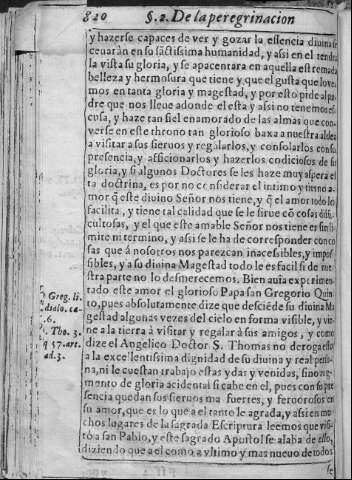 840 §.2. De la peregrinacion
y hazerse capaces de ver y gozar la essencia diuina se
ceuarán en su sãctissima humanidad, y assi en el tendra
la vista su gloria, y se apacentara en aquella estremada
belleza y hermosura que tiene y que el gusta que lovea
mos en tanta gloria y magestad, y por esto pide al pa
dre que nos lleue adonde el esta y assi no tenemos es
cusa, y haze tan fiel enamorado de las almas que con
verse en este throno tan glorioso baxa a nuestra aldea
a visitar a sus sieruos y regalarlos, y consolarlos con su
presencia, y afficionarlos y hazerlos codiciosos de su
gloria, y si algunos Doctores se les haze muy aspera es
ta doctrina, es por no considerar el intimo y tierno a-
mor q̃ este diuino Señor nos tiene, y q̃ el amor todo lo
facilita, y tiene tal calidad que se le sirue cõ cosas diffi-
cultosas, y el que este amable Señor nos tiene es sin li-
mite ni termino, y assi se le ha de corresponder con co
sas que à nosotros nos parezcan inacessibles, y impos
sibles, y a su diuina Magestad todo le es facil si de nue
stra parte no lo desmerecemos. Bien auia experimen-
tado este amor el glorioso Papa san Gregorio Quin
to, pues absolutamente dize que desciẽde su diuina Ma
gestad algunas vezes del cielo en forma visible, y vie
ne a la tierra à visitar y regalar à sus amigos, y como
dize el Angelico Doctor S. Thomas no derogasse
a la excellentissima dignidad de su diuina y real perso
na, ni le cuestan trabajo estas ydas y venidas, sino
mento de gloria acidental si cabe en el, pues con su pre
sencia quedan sus sieruos mas fuertes, y ferborosos en
su amor, que es lo que a el tanto le agrada, y assi en mu
chos lugares de la sagrada Escriptura leemos que visi
tò a san Pablo, y este sagrado Apostol se alaba de esso,
diziendo que a el como a vltimo y mas nueuo de todos
se
Greg. li.
dialo. ca-
.6.
Tho. 3.
q 57. art.
ad. 3.